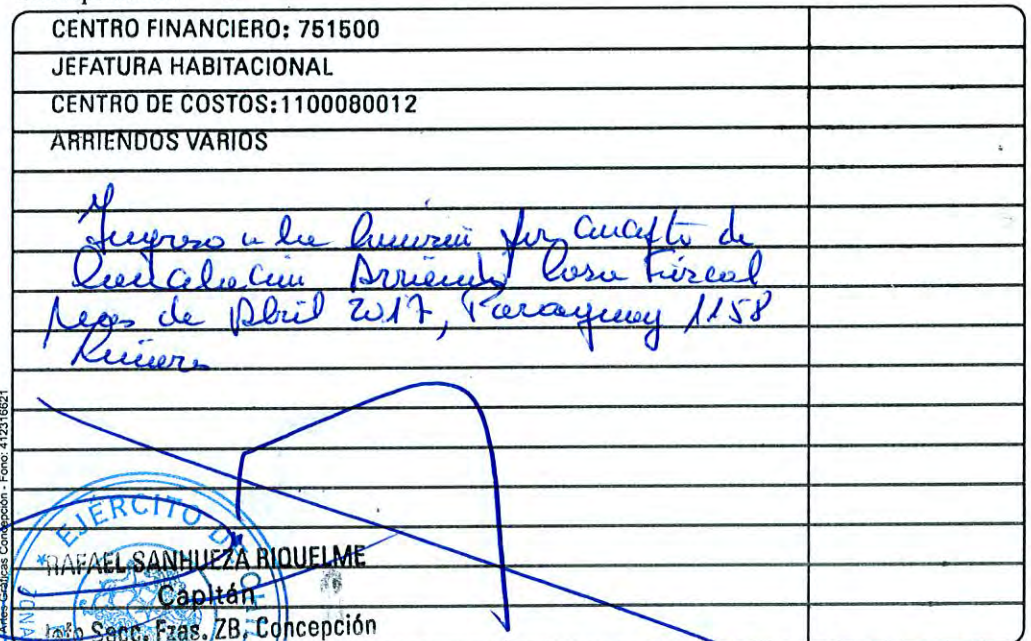 CENTRO FINANCIERO: 751500
JEFATURA HABITACIONAL
CENTRO DE COSTOS:1100080012
ARRIENDOS VARIOS
Ingreso a la
de
Arriendo Casa Fiscal
Mes de Abril 2017, Paraguay 1158
EJÉRCITO D
RAFAEL SANHUEZA RIQUELME
Capitán
Secc. Fzas. ZB, Concepción
Artes Gráficas Concepción - Fono: 412316621